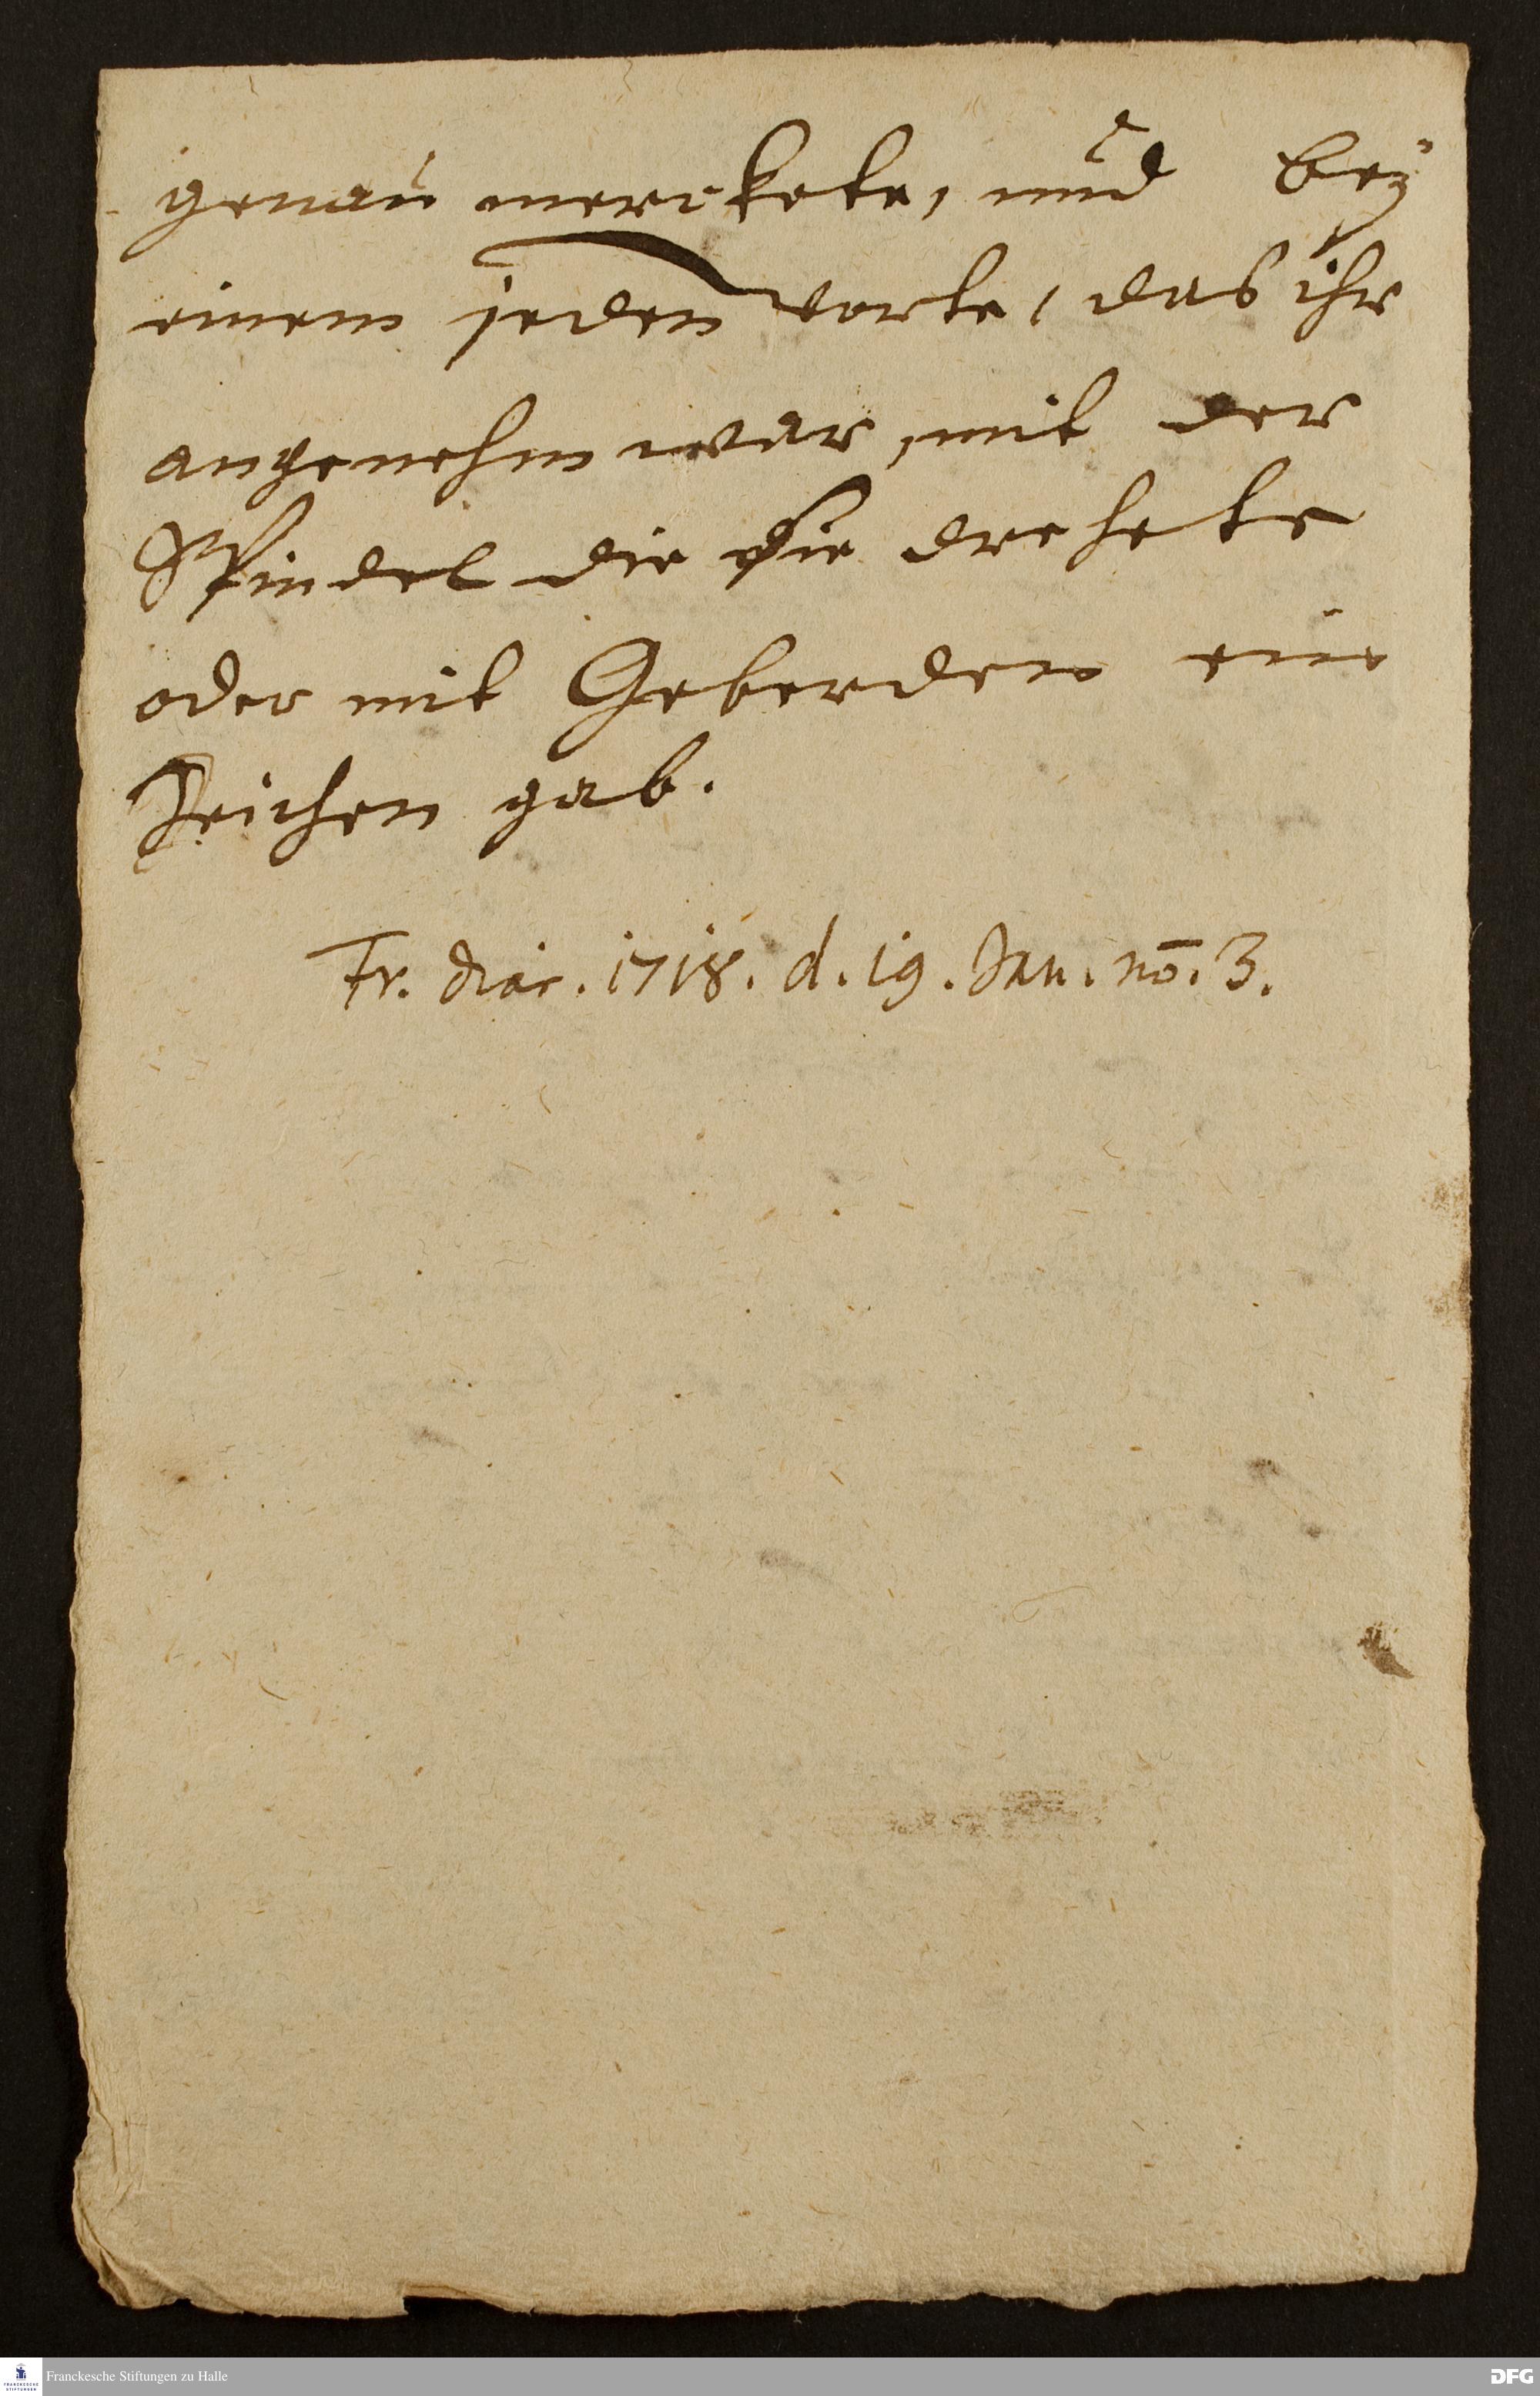 genau merckete, und bey
einem jeden worte, das ihr
angenehm war, mit der
Spindel die sie drehete
oder mit Geberden ein
Zeichen gab.
Fr. diar. 1718. d. 19. Jan. no. 3.
Franckesche Stiftungen zu Halle
DFG